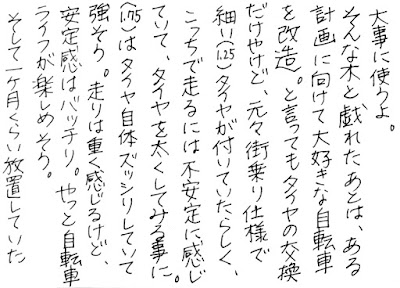 大事に使うよ。
そんな木と戯れたあとは、ある
計画に向けて大好きな自転車
を改造。と言ってもタイヤの交換
だけやけど 元々街乗り仕様で
細い(1.25)タイヤが付いていたらしく、
こっちで走るには不安定に感じ
ていて、タイヤを太くしてみる事に。
(1.75)はタイヤ自体ズッシリしていて
強そう。走りは重く感じるけど、
安定感はバッチリ。やっと自転車
ライフが楽しめそう。
そして一ヶ月くらい放置していた